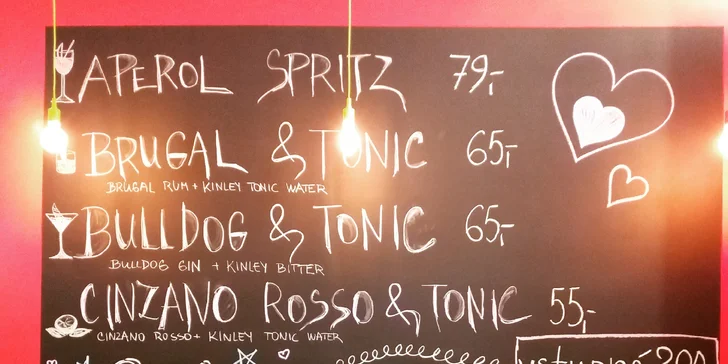 APEROL SPRITZ 79,-
BRUGAL & TONIC 65,-
BRUGAL RUM + KINLEY TONIC WATER
BULLDOG & TONIC 65,-
BULLDOG GIN + KINLEY BITTER
CINZANO ROSSO & TONIC 55,-
CINZANO ROSSO + KINLEY TONIC WATER